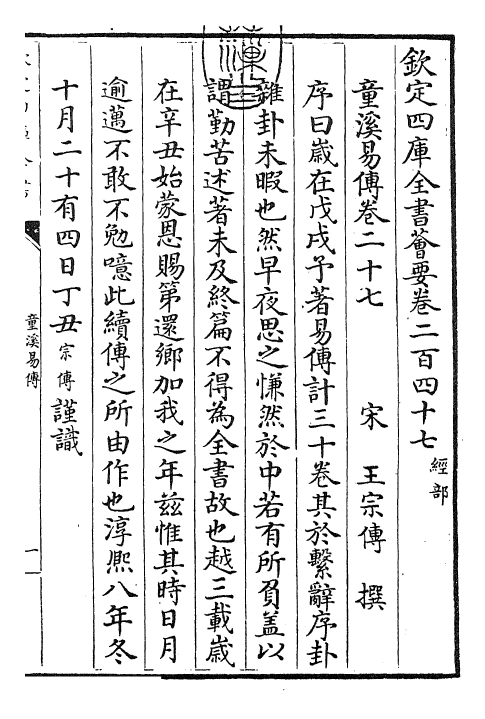 欽定四庫全書薈要卷二百四十七 經部
童溪易傳卷二十七 宋 王宗傳 撰
序曰歲在戊戌予著易傳計三十卷其於繫辭序卦
雜卦未暇也然早夜思之慊然於中若有所負蓋以
謂勤苦述著未及終篇不得為全書故也越三載歲
在辛丑始蒙恩賜第還鄉加我之年兹惟其時日月
逾邁不敢不勉噫此續傳之所由作也淳熈八年冬
十月二十有四日丁丑宗傳謹識
童溪易傳
一